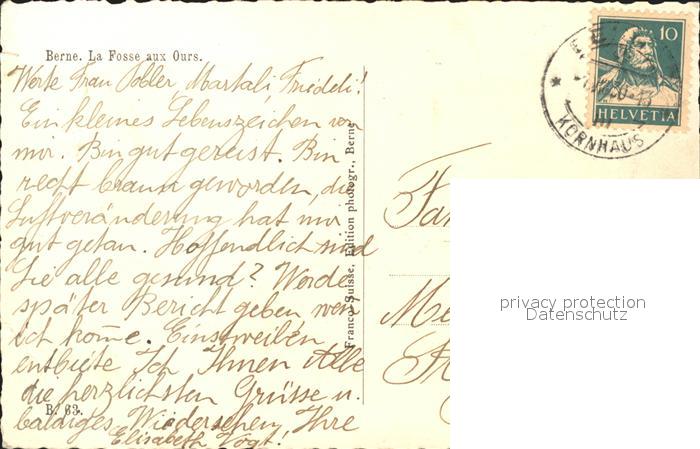 Berne. La Fosse aux Ours.
Werte Frau Martali, Friedli!
Ein kleines Lebenszeichen von
mir. Bin gut gereist. Bin
recht braun geworden, die
Luftveränderung hat mir
gut getan. Hoffendlich sind
Sie alle gesund? Werde
später Bericht geben, wen
ich kome. Einstweilen
entbiete Ich Ihnen Alle
die herzlichsten Grüsse u.
B. 63.
baldiges Wiedersehen, Ihre
Elisabeth Vogt!
Franco-Suisse, Edition photogr., Berne
10
HELVETIA
KORNHAUS
Fam
Me
privacy protection
Datenschutz